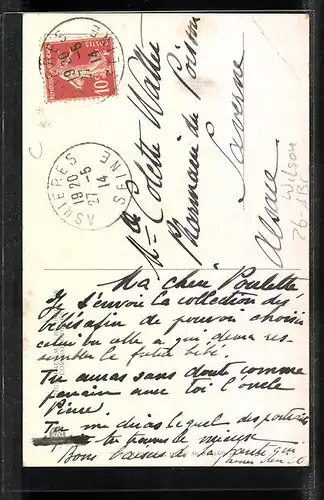 ASNIERES
SEINE
19 20
27 - 5
14
POSTES
10
ASNIERES
19 20
27 - 5
14
SEINE
Mlle Colette Walter
Pharmacie du Poisson
Saverne
Alsace
Wilson
Ma chère Poulette
Je t'envoie la collection des
bébés afin de pouvoir choisir
celui ou elle a qui devra res-
sembler le futur bébé.
Tu auras sans doute comme
parrain avec toi l'oncle
Pierre.
Tu me diras lequel des portraits
tu trouves le mieux
Bons baisers de ta tante qui